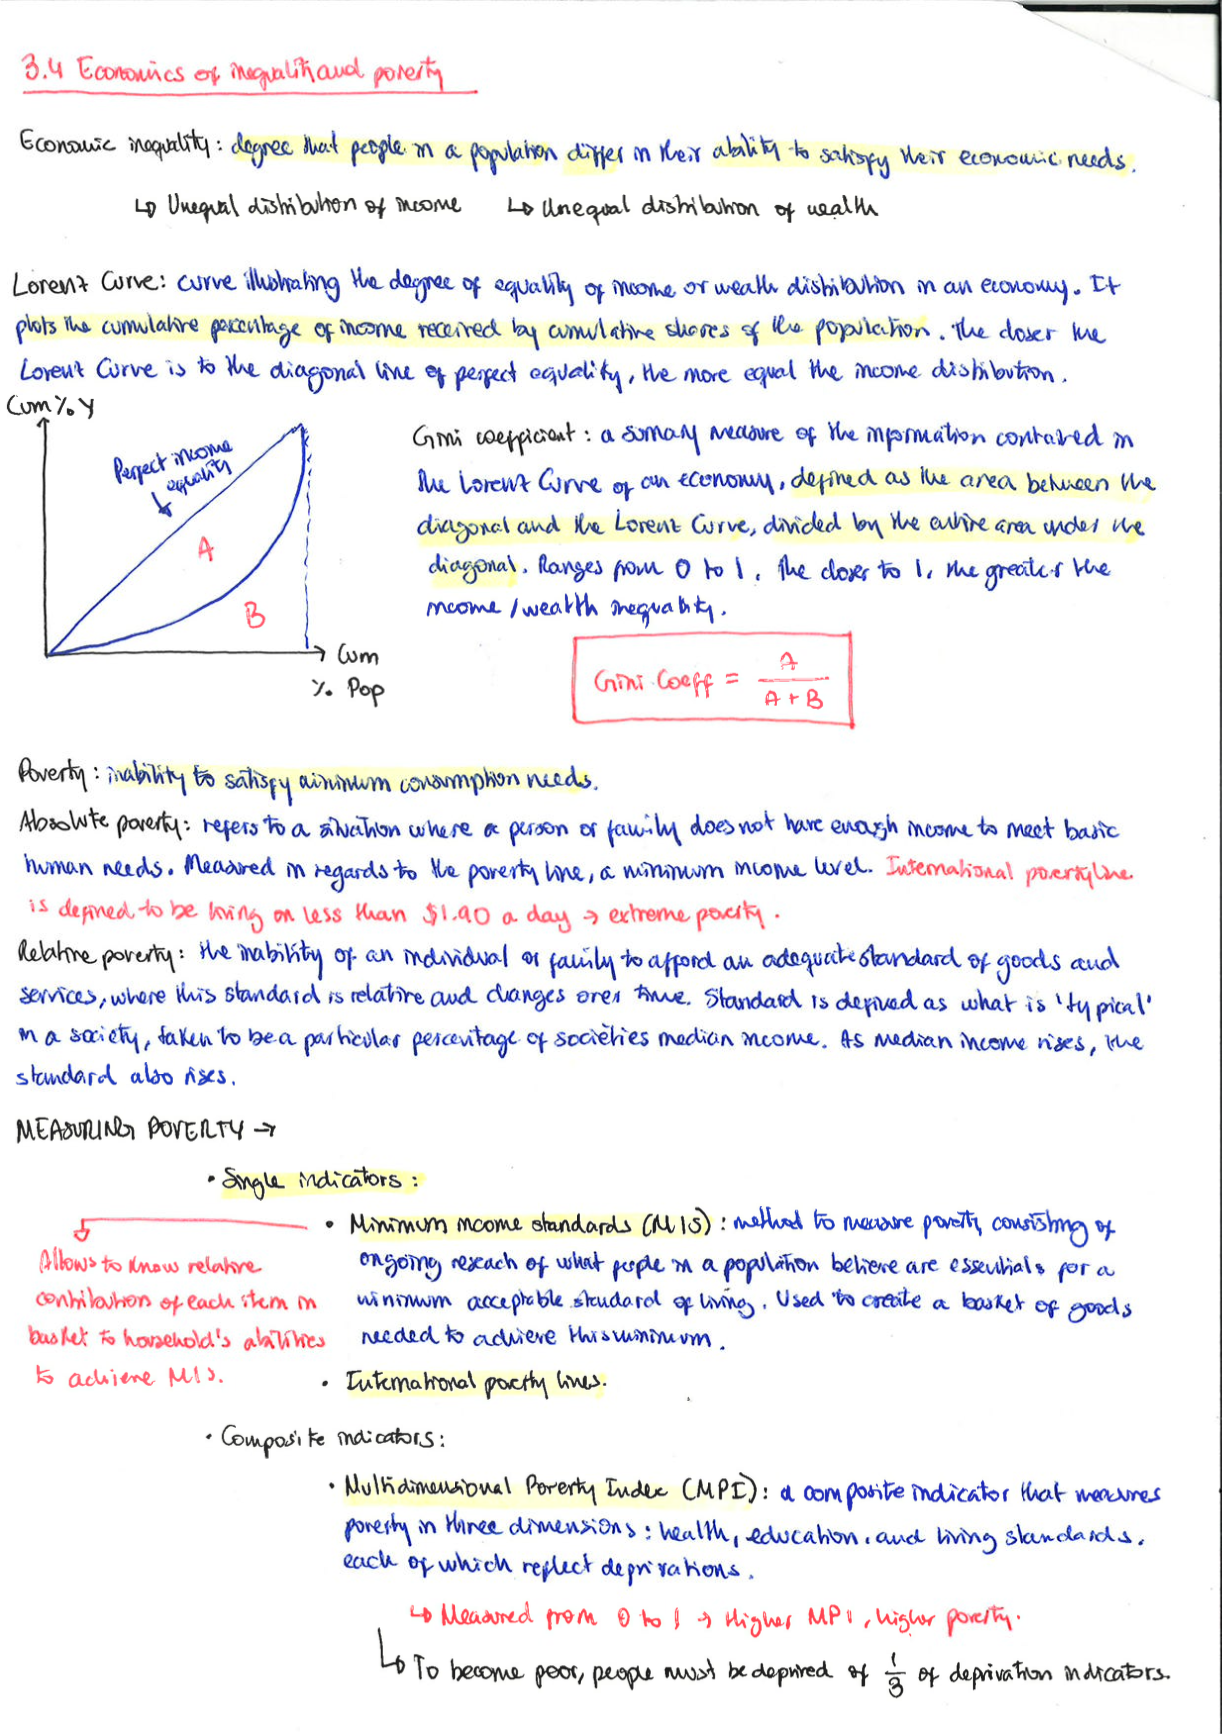 3.4 Economics of inequality and poverty
Economic inequality: degree that people in a population differ in their ability to satisfy their economic needs.
↳ Unequal distribution of income ↳ Unequal distribution of wealth
Lorenz Curve: curve illustrating the degree of equality of income or wealth distribution in an economy. It
plots the cumulative percentage of income received by cumulative shares of the population. The closer the
Lorenz Curve is to the diagonal line of perfect equality, the more equal the income distribution.
Cum % Y
Perfect income
equality
A
B
Cum
% Pop
Gini coefficient: a sumary measure of the information contained in
the Lorenz Curve of an economy, defined as the area between the
diagonal and the Lorenz Curve, divided by the entire area under the
diagonal. Ranges from 0 to 1. The closer to 1, the greater the
income/wealth inequality.
Gini Coeff = A / A + B
Poverty: inability to satisfy minimum consumption needs.
Absolute poverty: refers to a situation where a person or family does not have enough income to meet basic
human needs. Measured in regards to the poverty line, a minimum income level. International poverty line
is defined to be living on less than $1.90 a day → extreme poverty.
Relative poverty: the inability of an individual or family to afford an adequate standard of goods and
services, where this standard is relative and changes over time. Standard is defined as what is 'typical'
in a society, taken to be a particular percentage of societies median income. As median income rises, the
standard also rises.
MEASURING POVERTY →
• Single indicators:
• Minimum income standards (MIS): method to measure poverty consisting of
ongoing reseach of what people in a population believe are essentials for a
minimum acceptable standard of living. Used to create a basket of goods
needed to achieve this minimum.
Allows to know relative
contribution of each item in
basket to household's abilities
to achieve MIS.
• International poverty lines.
• Composite indicators:
• Multidimensional Poverty Index (MPI): a composite indicator that measures
poverty in three dimensions: health, education, and living standards,
each of which reflect deprivations.
↳ Measured from 0 to 1 → Higher MPI, higher poverty.
↳ To become poor, people must be deprived of 1/3 of deprivation indicators.